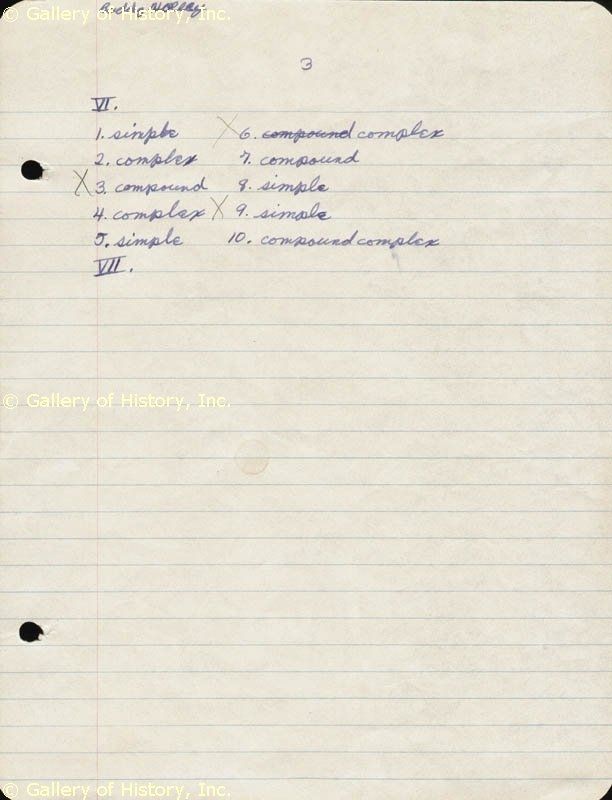 © Gallery of History, Inc.
Buddy Holley
3
VI.
1. simple X 6. compound complex
2. complex 7. compound
X 3. compound 8. simple
4. complex X 9. simple
5. simple 10. compound complex
VII.
© Gallery of History, Inc.
© Gallery of History, Inc.